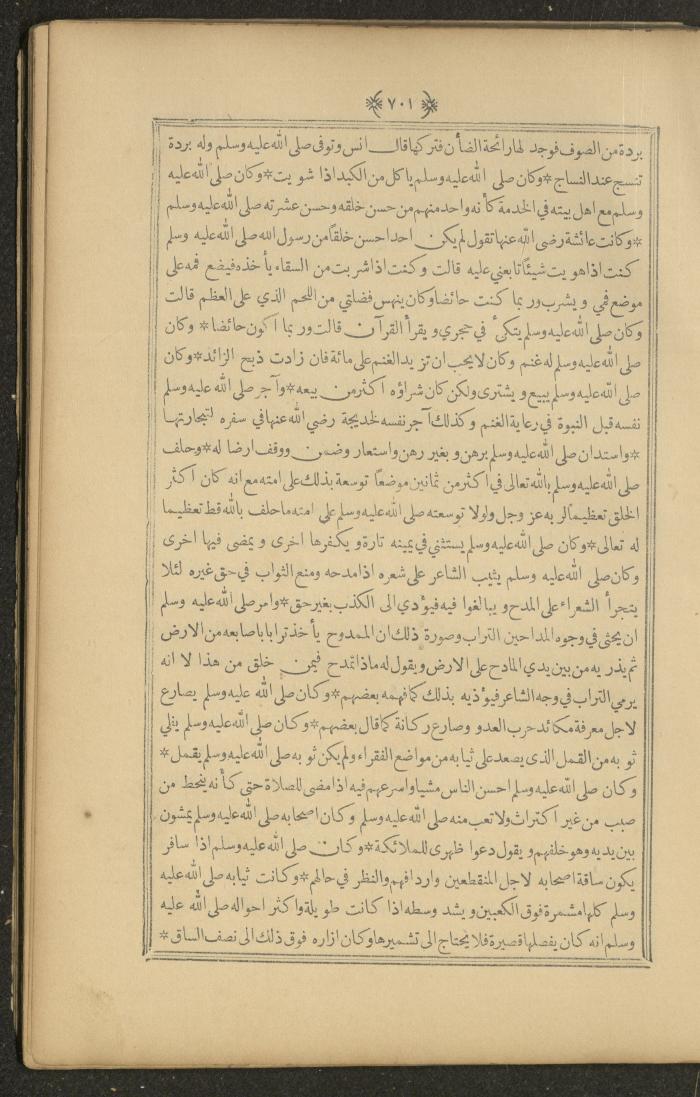 ٧٠١
بردة من الصوف فوجد لها رائحة الضأن فتركها قال انس وتوفى صلى الله عليه وسلم وله بردة
تنسج عند النساج * وكان صلى الله عليه وسلم ياكل من الكبد اذا شويت * وكان صلى الله عليه
وسلم مع اهل بيته في الخدمة كأنه واحد منهم من حسن خلقه وحسن عشرته صلى الله عليه وسلم
* وكانت عائشة رضى الله عنها تقول لم يكن احد احسن خلقاً من رسول الله صلى الله عليه وسلم
كنت اذا هويت شيئاً تابعني عليه قالت وكنت اذا شربت من السقاء يأخذه فيضع فمه على
موضع فمي ويشرب وربما كنت حائضا وكان ينهس فضلتي من اللحم الذي على العظم قالت
وكان صلى الله عليه وسلم يتكئ في حجري ويقرأ القرآن قالت وربما اكون حائضا * وكان
صلى الله عليه وسلم له غنم وكان لا يحب ان تزيد الغنم على مائة فان زادت ذبح الزائد * وكان
صلى الله عليه وسلم يبيع ويشترى ولكن كان شراؤه اكثر من بيعه * وآجر صلى الله عليه وسلم
نفسه قبل النبوة في رعاية الغنم وكذلك آجر نفسه لخديجة رضي الله عنها في سفره لتجارتها
* واستدان صلى الله عليه وسلم برهن وبغير رهن واستعار وضمن ووقف ارضا له * وحلف
صلى الله عليه وسلم بالله تعالى في اكثر من ثمانين موضعاً توسعة بذلك على امته مع انه كان اكثر
الخلق تعظيماً لربه عز وجل ولولا توسعته صلى الله عليه وسلم على امته ما حلف بالله قط تعظيما
له تعالى * وكان صلى الله عليه وسلم يستثنى في يمينه تارة ويكفرها اخرى ويمضى فيها اخرى
وكان صلى الله عليه وسلم يثيب الشاعر على شعره اذا مدحه ومنع الثواب في حق غيره لئلا
يتجرأ الشعراء على المدح ويبالغوا فيه فيؤدي الى الكذب بغير حق * وامر صلى الله عليه وسلم
ان يحثى في وجوه المداحين التراب وصورة ذلك ان الممدوح يأخذ ترابا باصابعه من الارض
ثم يذريه من بين يدي المادح على الارض ويقول له ماذا تمدح فيمن خلق من هذا لا انه
يرمي التراب في وجه الشاعر فيؤذيه بذلك كما فهمه بعضهم * وكان صلى الله عليه وسلم يصارع
لاجل معرفة مكائد حرب العدو وصارع ركانة كما قال بعضهم * وكان صلى الله عليه وسلم يفلي
ثوبه من القمل الذى يصعد على ثيابه من مواضع الفقراء ولم يكن ثوبه صلى الله عليه وسلم يقمل *
وكان صلى الله عليه وسلم احسن الناس مشيا واسرعهم فيه اذا مضى للصلاة حتى كأنه ينحط من
صبب من غير اكتراث ولا تعب منه صلى الله عليه وسلم وكان اصحابه صلى الله عليه وسلم يمشون
بين يديه وهو خلفهم ويقول دعوا ظهرى للملائكة * وكان صلى الله عليه وسلم اذا سافر
يكون ساقة اصحابه لاجل المنقطعين واردافهم والنظر في حالهم * وكانت ثيابه صلى الله عليه
وسلم كلها مشمرة فوق الكعبين ويشد وسطه اذا كانت طويلة واكثر احواله صلى الله عليه
وسلم انه كان يفصلها قصيرة فلا يحتاج الى تشميرها وكان ازاره فوق ذلك الى نصف الساق *